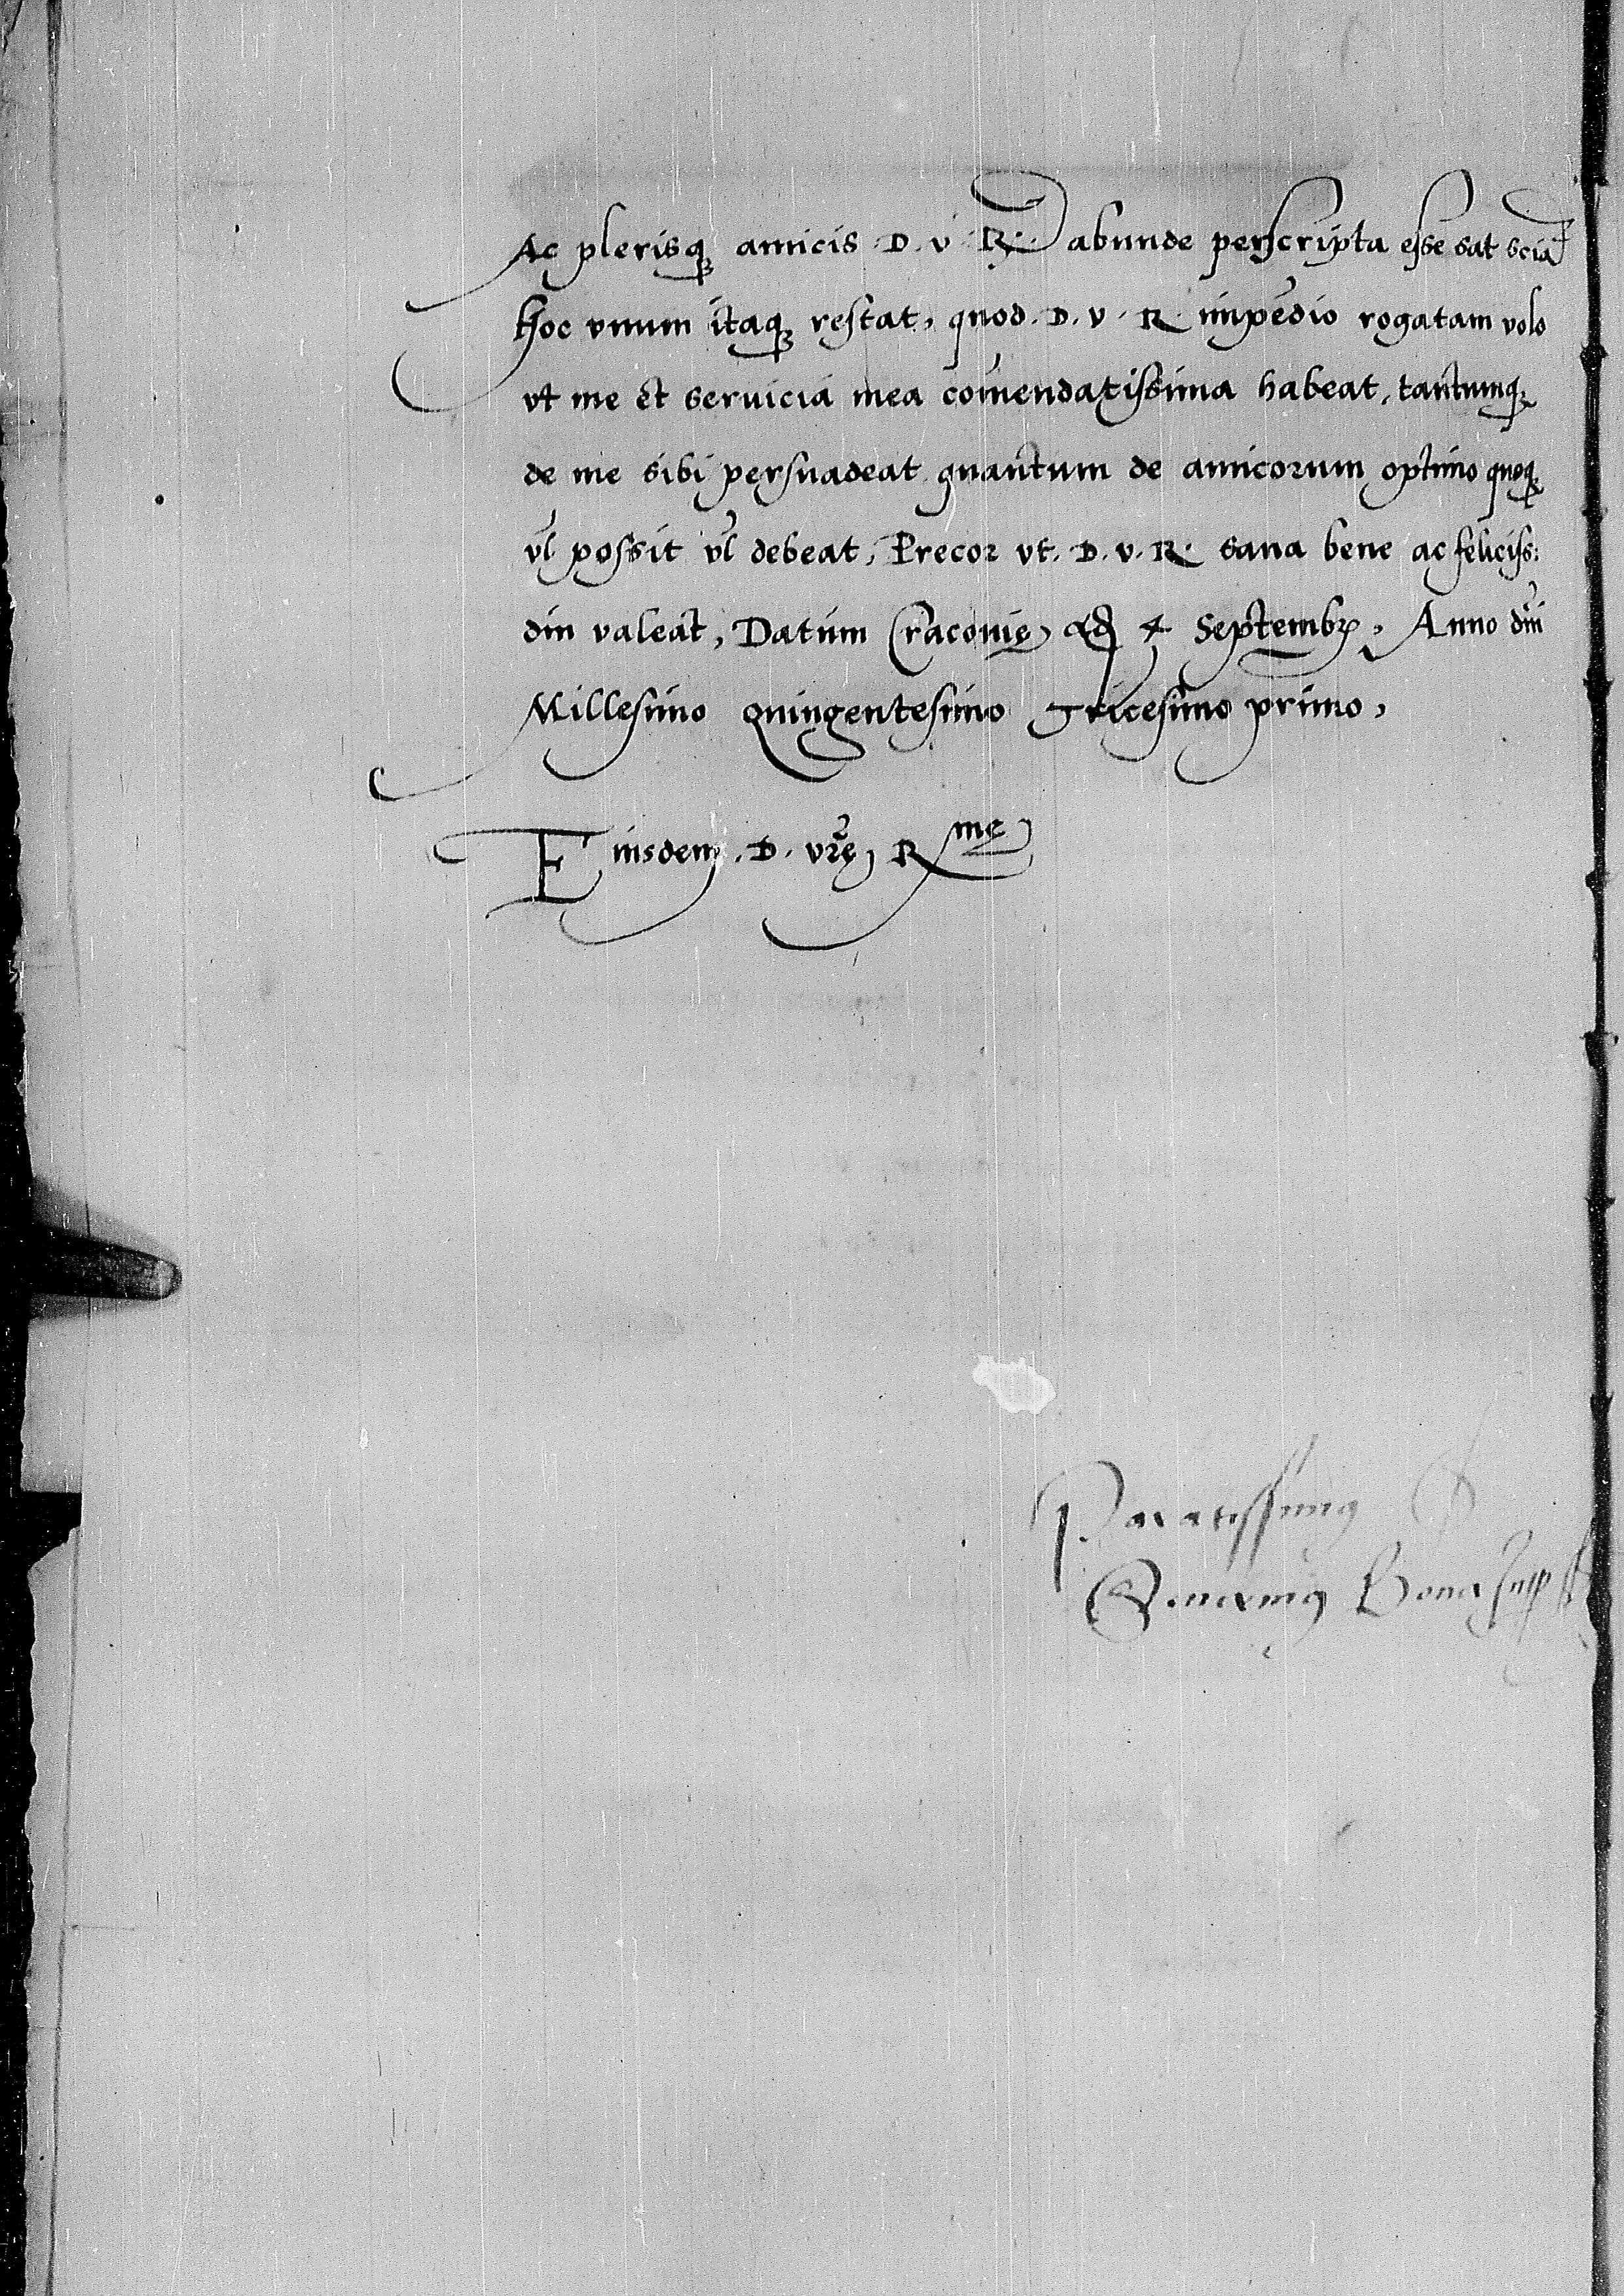 Ac plerisqꝫ amicis D. v. R. abunde perscripta esse sat sciā
Hoc vnum itaqꝫ restat, quod D. v. R. impēdio rogatam volo
vt me et seruicia mea com̄endatissima habeat, tantumqꝫ
de me sibi persuadeat quantum de amicorum optimo quoqꝫ
vl̄ possit vl̄ debeat, Precor vt. D. v. R. sana bene ac feliciss:
diu valeat, Datum Cracouię 4 Septembrꝭ, Anno dn̄i
Millesimo quingentesimo Tricesimo primo,
Eiusdem. D. vrē R mę
Paratissimus
Seuerinus Boner